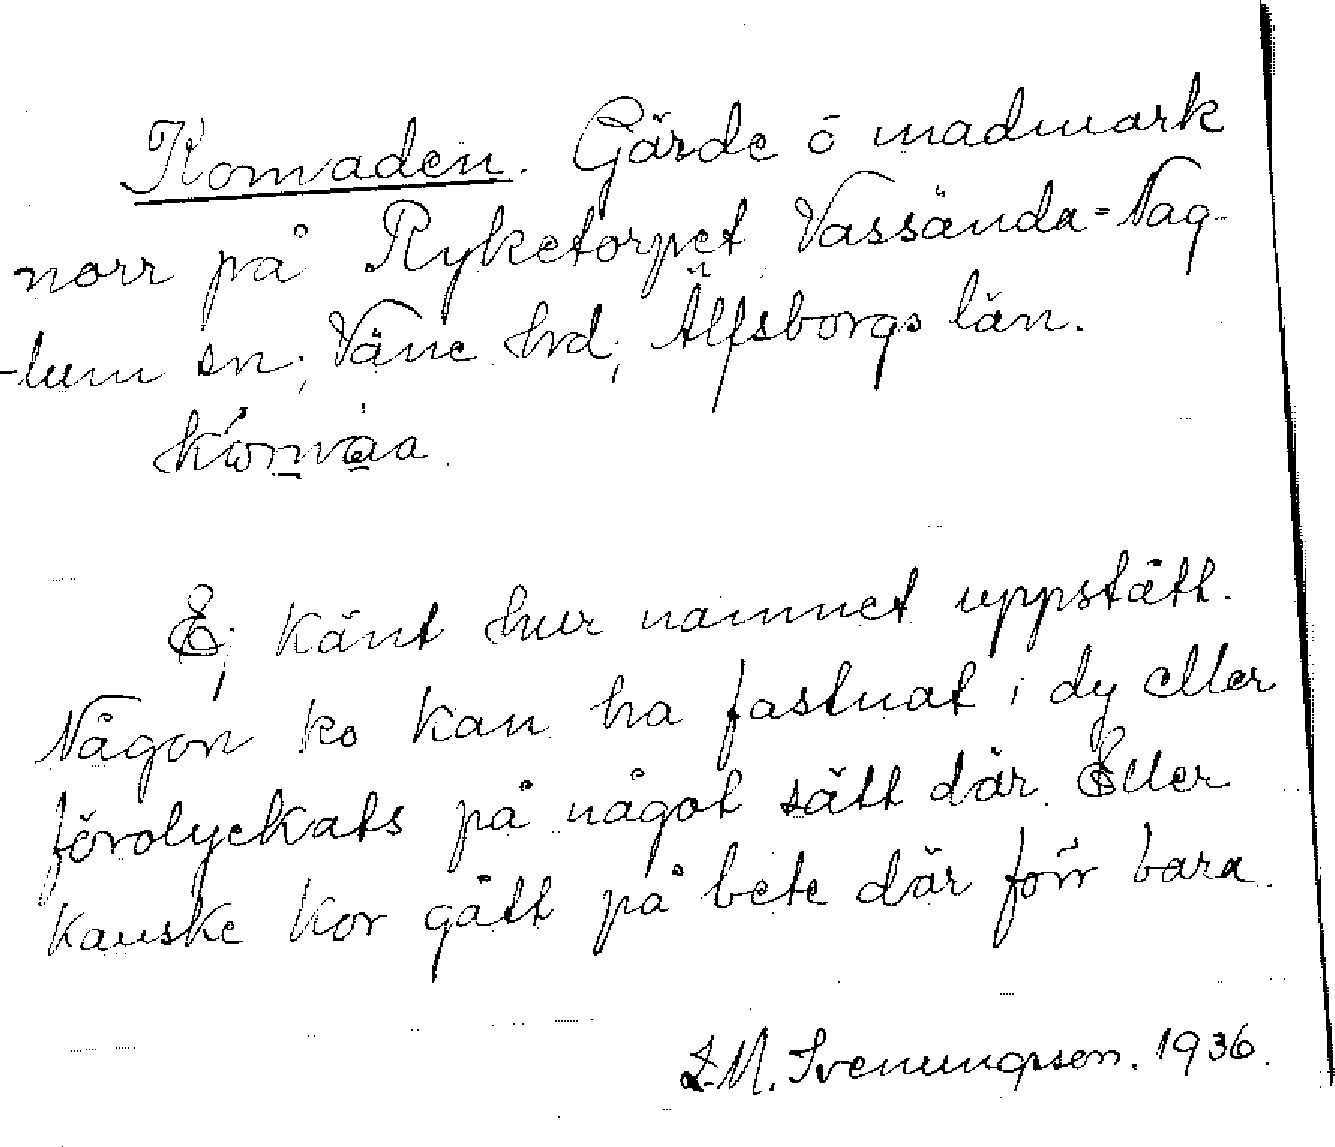 Komaden. Gärde ö madmark
norr på Ryketorpet Vassända=Nag-
-lum sn; Väne hrd; Älfsborgs län.
Ej känt hur namnet uppstått.
Någon ko kan ha fastnat i dy eller
förolyckats på något sätt där. Eller
kanske kor gått på bete där förr bara.
L.M. Svenungsson. 1936.